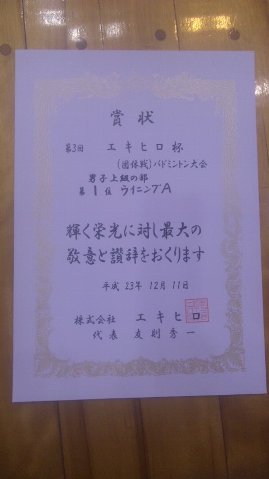 賞状
第3回 エキヒロ杯
(団体戦)バドミントン大会
男子上級の部
第1位 ウイニングA
輝く栄光に対し最大の
敬意と讃辞をおくります
平成 23年 12月 11日
株式会社 エキヒロ
代表 友利秀一